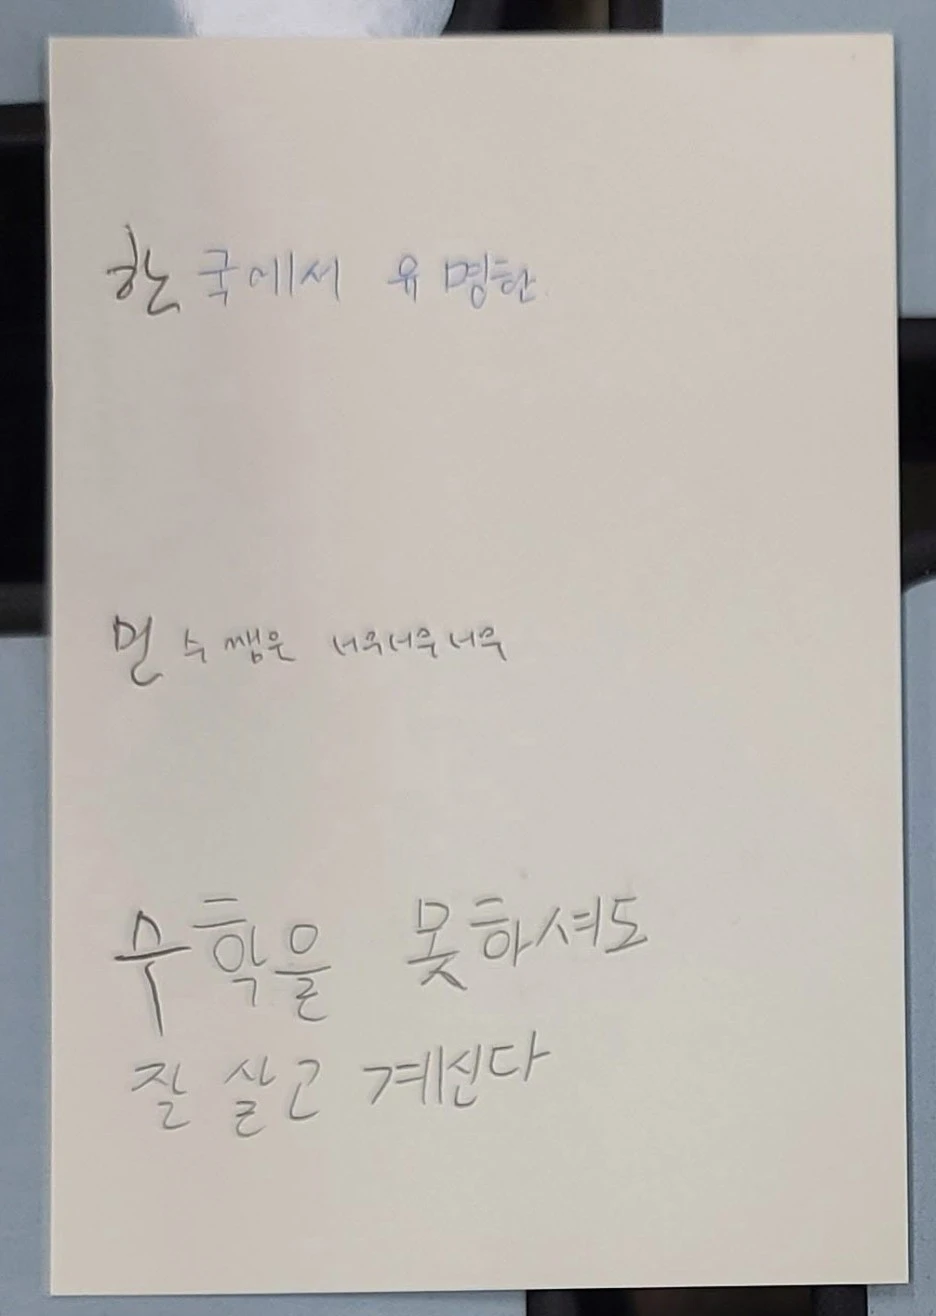 한국에서 유명한
먼 수쌤은 너우너우너우
수학을 못하셔도
잘 살고 계신다